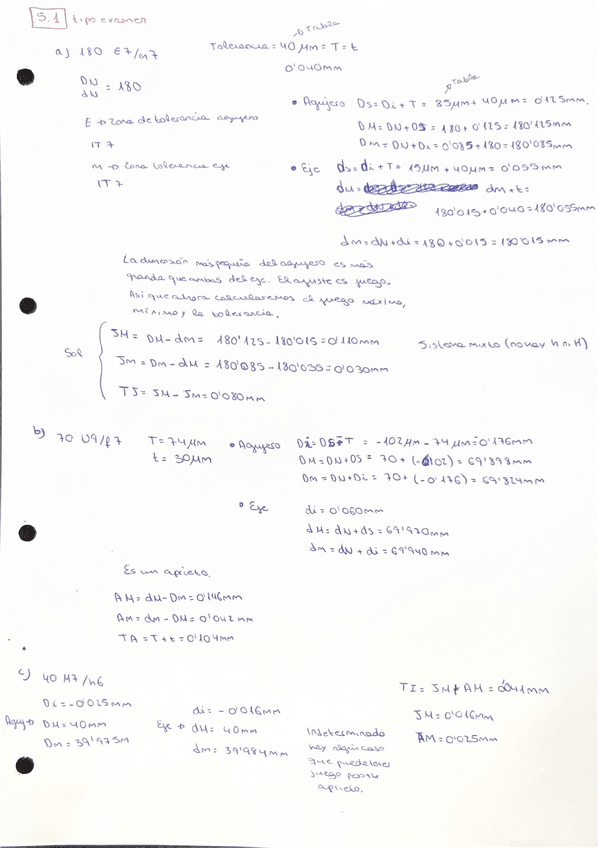 5.1 tipo examen
Tabla
a) 180 E7/m7
Tolerancia = 40 μm = T = t
0'040mm
DN
dN = 180
Tabla
• Agujero Ds = Di + T = 85μm + 40μm = 0'125mm.
DM = DN + DS = 180 + 0'125 = 180'125mm
Dm = DN + Di = 0'085 + 180 = 180'085mm
E → Zona de tolerancia agujero
IT7
m → Zona tolerancia eje
IT7
• Eje ds = di + T = 15μm + 40μm = 0'055mm
dM = dm + t =
180'015 + 0'040 = 180'055mm
dm = dN + di = 180 + 0'015 = 180'015mm
La dimensión más pequeña del agujero es más
grande que ambas del eje. El ajuste es juego.
Así que ahora calcularemos el juego máximo,
mínimo y la tolerancia.
Sol
JM = DM - dm = 180'125 - 180'015 = 0'110mm
Jm = Dm - dM = 180'085 - 180'055 = 0'030mm
TJ = JM - Jm = 0'080mm
Sistema mixto (no hay h ni H)
b) 70 U9/f7
T = 74μm
t = 30μm
• Agujero Di = DS - T = -102μm - 74μm = 0'176mm
DM = DN + DS = 70 + (-0'102) = 69'898mm
Dm = DN + Di = 70 + (-0'176) = 69'824mm
• Eje di = 0'060mm
dM = dN + ds = 69'970mm
dm = dN + di = 69'940mm
Es un aprieto.
AM = dM - Dm = 0'146mm
Am = dm - DM = 0'042mm
TA = T + t = 0'104mm
c) 40 M7/h6
Di = -0'025mm
Aguj → DM = 40mm
Dm = 39'975m
di = -0'016mm
Eje → dM = 40mm
dm = 39'984mm
Indeterminado
hay algún caso
que puede tener
juego
aprieto.
TI = JM + AM = 0'041mm
JM = 0'016mm
AM = 0'025mm